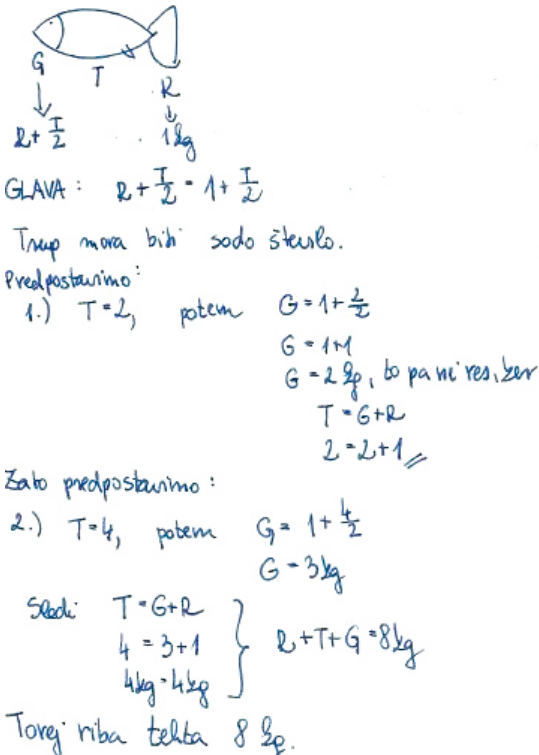 G
T
R
R + T/2
1 kg
GLAVA: R + T/2 = 1 + T/2
Trup mora biti sodo število.
Predpostavimo:
1.) T = 2, potem G = 1 + 2/2
G = 1+1
G = 2 kg, to pa ni res, ker
T = G + R
2 = 2 + 1
Zato predpostavimo:
2.) T = 4, potem G = 1 + 4/2
G = 3 kg
Sledi T = G + R
4 = 3 + 1
R + T + G = 8 kg
4 kg = 4 kg
Torej riba tehta 8 kg.